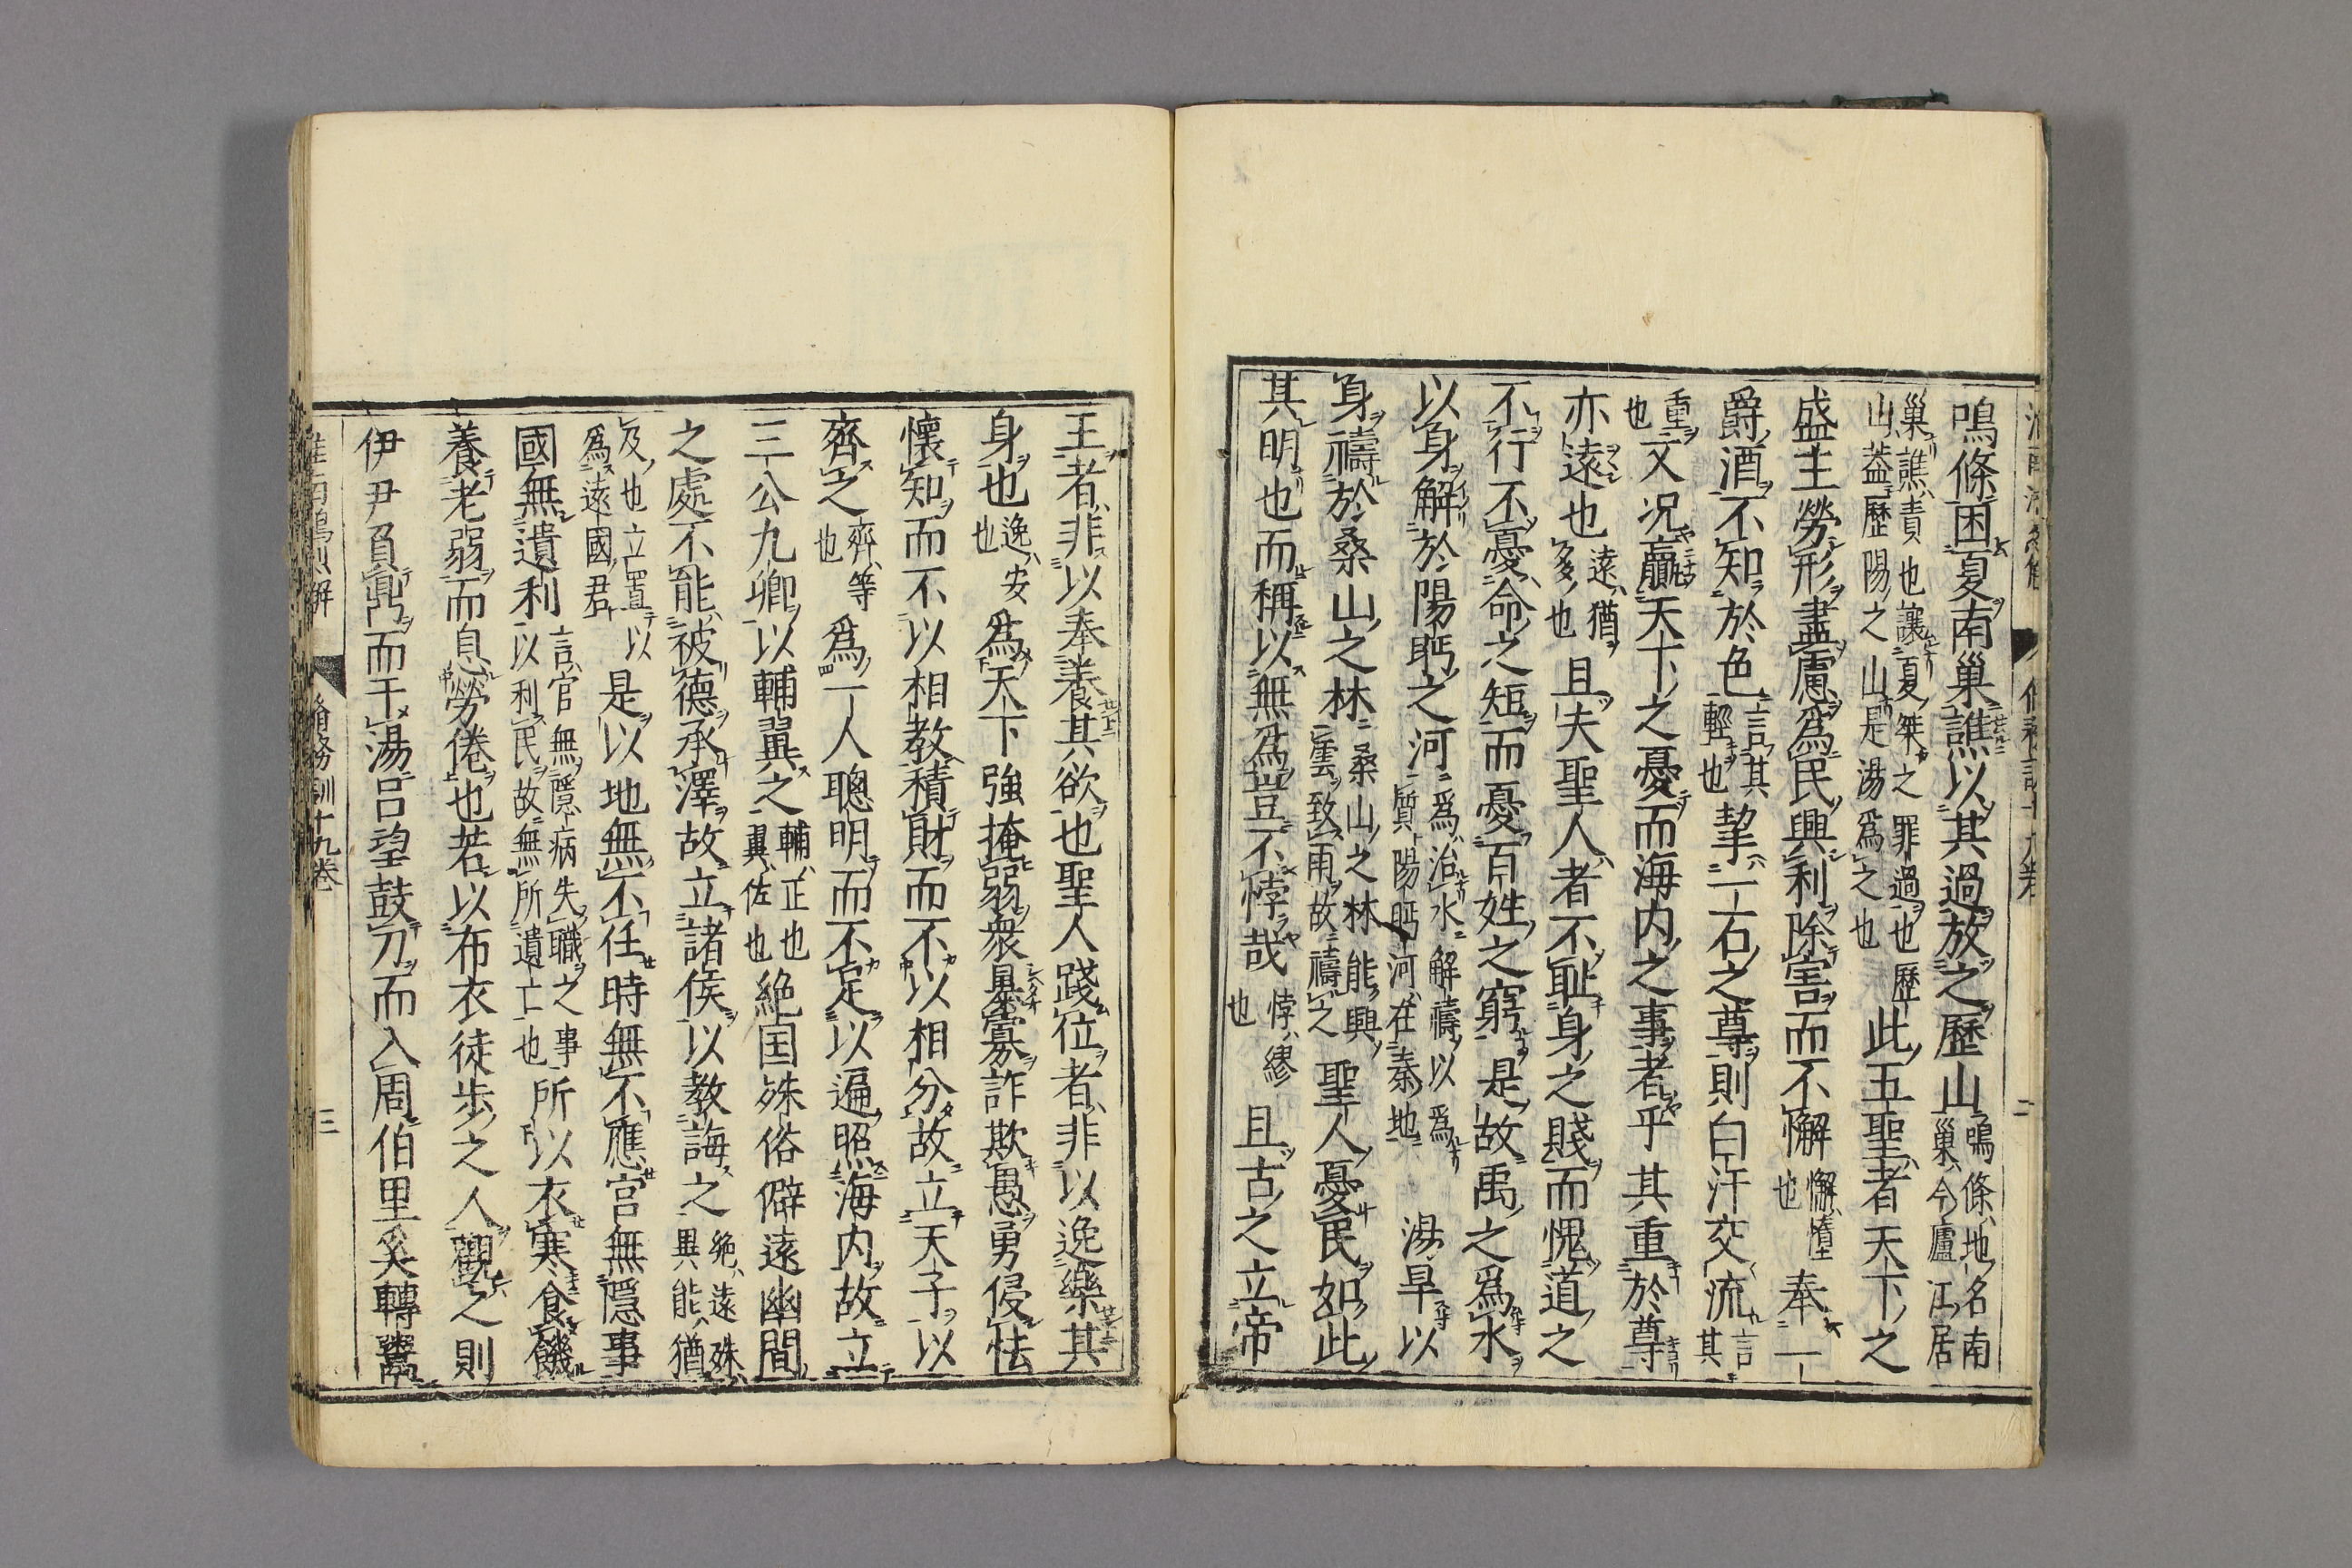 鳴條困夏南巢譙以其過放之歷山鳴條地名南巢今廬江居
巢譙責也讓夏桀之罪過也歷山蓋歷陽之山是湯爲之也此五聖者天下之
盛主勞形盡慮爲民興利除害而不懈懈惰也奉一
爵酒不知於色言其輕也挈一石之尊則白汗交流言其
重也又况贏天下之憂而海内之事者乎其重於尊
亦遠也遠猶多也且夫聖人者不恥身之賤而愧道之
不行不憂命之短而憂百姓之窮是故禹之爲水
以身解於陽眄之河爲治水解禱以爲質陽眄河在秦地湯旱以
身禱於桑山之林桑山之林能興雲致雨故禱之聖人憂民如此
其明也而稱以無爲豈不悖哉悖繆也且古之立帝
王者非以奉養其欲也聖人踐位者非以逸樂其
身也逸安也爲天下強掩弱衆暴寡詐欺愚勇侵怯
懷知而不以相教積財而不以相分故立天子以
齊之齊等也爲一人聰明而不足以遍照海内故立
三公九卿以輔翼之輔正也翼佐也絶国殊俗僻遠幽間
之處不能被德承澤故立諸侯以教誨之絶遠殊異能猶
及也立置以爲遠國君是以地無不任時無不應官無隱事
國無遺利言官無隱病失職之事以利民故無所遺亡也所以衣寒食饑
養老弱而息勞倦也若以布衣徒步之人觀之則
伊尹負鼎而干湯呂望鼓刀而入周伯里奚轉鬻
脩務訓十九卷
三